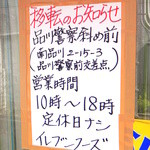 移転のお知らせ
品川警察斜め前
(南品川2-15-3
品川警察前交差点)
営業時間
10時～18時
定休日ナシ
イレブンフーズ